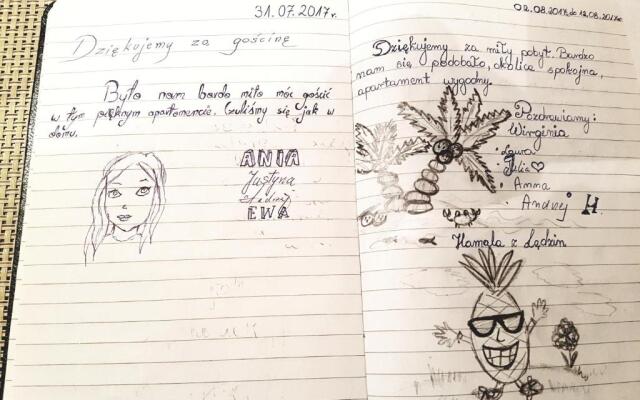 31.07.2017r.
Dziękujemy za gościnę
Było nam bardo miło móc gościć
w tym pięknym apartamencie. Czuliśmy się jak w
domu.
ANIA
Justyna
EWA
02.08.2017 do 12.08.2017r.
Dziękujemy za miły pobyt. Bardzo
nam się podobało, okolica spokojna,
apartament wygodny.
Pozdrawiamy:
Wirginia
• Laura
• Julia♡
• Anna
• Andrzej H.